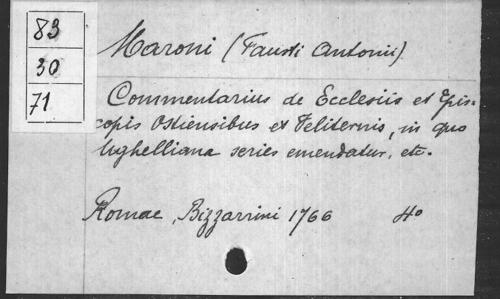 83
30
71
Maroni (Fausti Antonii).
Commentarius de Ecclesiis et Epis-
copis Ostiensibus et Veliternis, in quo
Ughelliana series emendatur, etc.
Romae, Bizzarrini 1766 4°